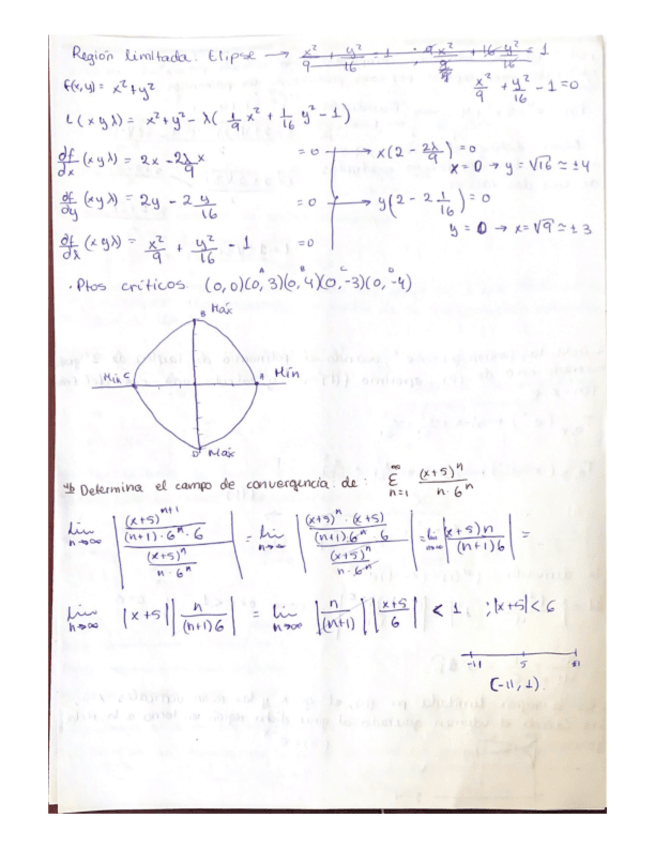 Región limitada: Elipse → x²/9 + y²/16 = 1 ; 9x²/9 + 16y²/16 = 1
f(x,y) = x² + y²
x²/9 + y²/16 - 1 = 0
L(x y λ) = x² + y² - λ( 1/9 x² + 1/16 y² - 1)
df/dx (x y λ) = 2x - 2λ/9 x = 0 → x(2 - 2λ/9) = 0
x = 0 → y = √16 ≃ ±4
df/dy (x y λ) = 2y - 2 y/16 = 0 → y(2 - 2 1/16) = 0
y = 0 → x = √9 ≃ ±3
df/dλ (x y λ) = x²/9 + y²/16 - 1 = 0
A B C D
· Ptos críticos (0,0)(0,3)(0,4)(0,-3)(0,-4)
B Máx
Mín C A Mín
D Máx
Determina el campo de convergencia de: Σ n=1 ∞ (x+5)ⁿ / n·6ⁿ
lim n→∞ | (x+5)ⁿ⁺¹/(n+1)·6ⁿ·6 / (x+5)ⁿ/n·6ⁿ | = lim n→∞ | (x+5)ⁿ·(x+5)/(n+1)·6ⁿ·6 / (x+5)ⁿ/n·6ⁿ | = lim n→∞ | (x+5)n/(n+1)6 | =
lim n→∞ |x+5| | n/(n+1)6 | = lim n→∞ | n/(n+1) | | x+5/6 | < 1 ; |x+5| < 6
-11 5 1
(-11, 1)